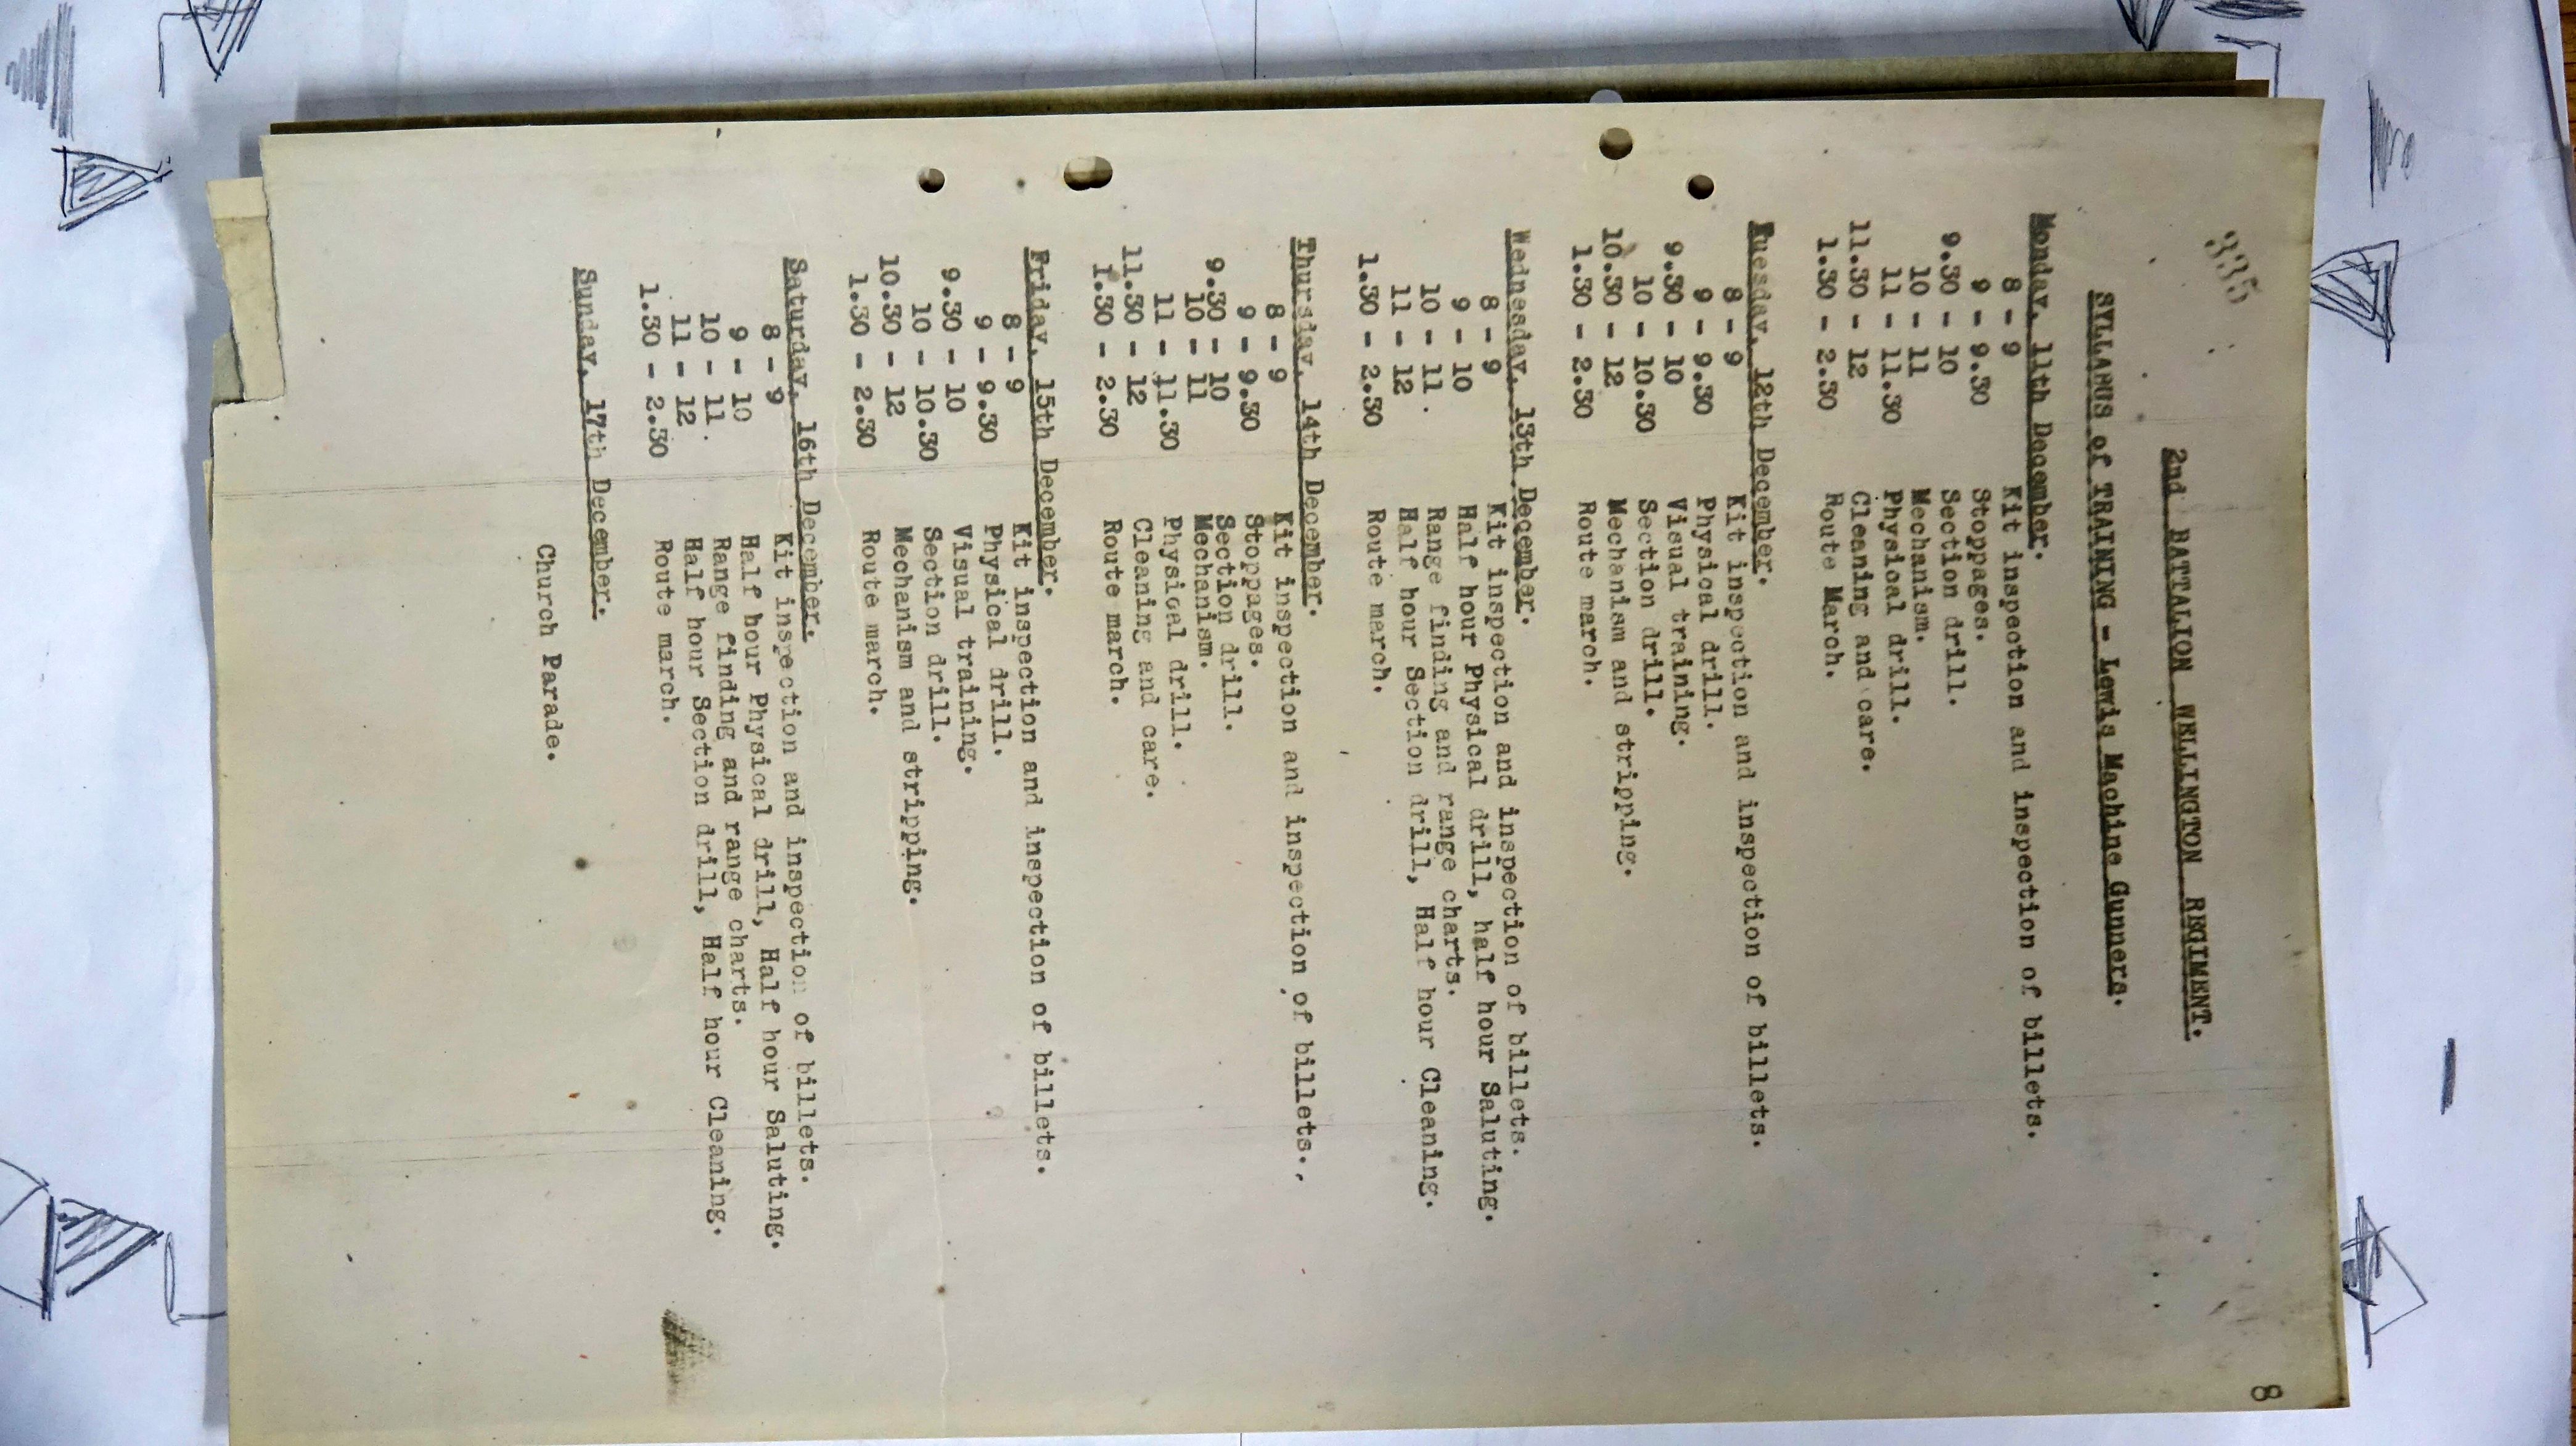 335
8
2nd BATTALION WELLINGTON REGIMENT.
SYLLABUS of TRAINING - Lewis Machine Gunners.
Monday, 11th December.
8 - 9 Kit inspection and inspection of billets.
9 - 9.30 Stoppages.
9.30 - 10 Section drill.
10 - 11 Mechanism.
11 - 11.30 Physical drill.
11.30 - 12 Cleaning and care.
1.30 - 2.30 Route March.
Tuesday, 12th December.
8 - 9 Kit inspection and inspection of billets.
9 - 9.30 Physical drill.
9.30 - 10 Visual training.
10 - 10.30 Section drill.
10.30 - 12 Mechanism and stripping.
1.30 - 2.30 Route march.
Wednesday, 13th December.
8 - 9 Kit inspection and inspection of billets.
9 - 10 Half hour Physical drill, half hour Saluting.
10 - 11. Range finding and range charts.
11 - 12 Half hour Section drill, Half hour Cleaning.
1.30 - 2.30 Route march.
Thursday, 14th December.
8 - 9 Kit inspection and inspection of billets.,
9 - 9.30 Stoppages.
9.30 - 10 Section drill.
10 - 11 Mechanism.
11 - 11.30 Physical drill.
11.30 - 12 Cleaning and care.
1.30 - 2.30 Route march.
Friday, 15th December.
8 - 9 Kit inspection and inspection of billets.
9 - 9.30 Physical drill.
9.30 - 10 Visual training.
10 - 10.30 Section drill.
10.30 - 12 Mechanism and stripping.
1.30 - 2.30 Route march.
Saturday, 16th December.
8 - 9 Kit inspection and inspection of billets.
9 - 10 Half hour Physical drill, Half hour Saluting.
10 - 11. Range finding and range charts.
11 - 12 Half hour Section drill, Half hour Cleaning.
1.30 - 2.30 Route march.
Sunday, 17th December.
Church Parade.